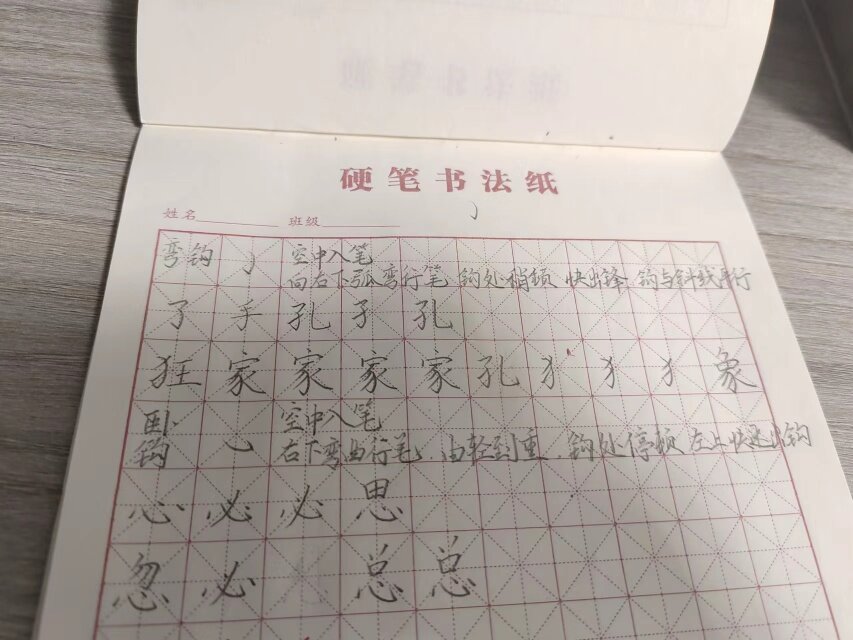 硬笔书法纸
姓名 班级
弯钩 空中入笔
向右下弧弯行笔 钩处稍顿 快出锋 钩与斜线平行
了 手 孔 孑 孔
狂 家 家 家 家 孔 犭 犭 犭 象
卧钩 空中入笔
右下弯曲行笔 由轻到重 . 钩处停顿 左上快速出钩
心 必 必 思
忽 必 总 总